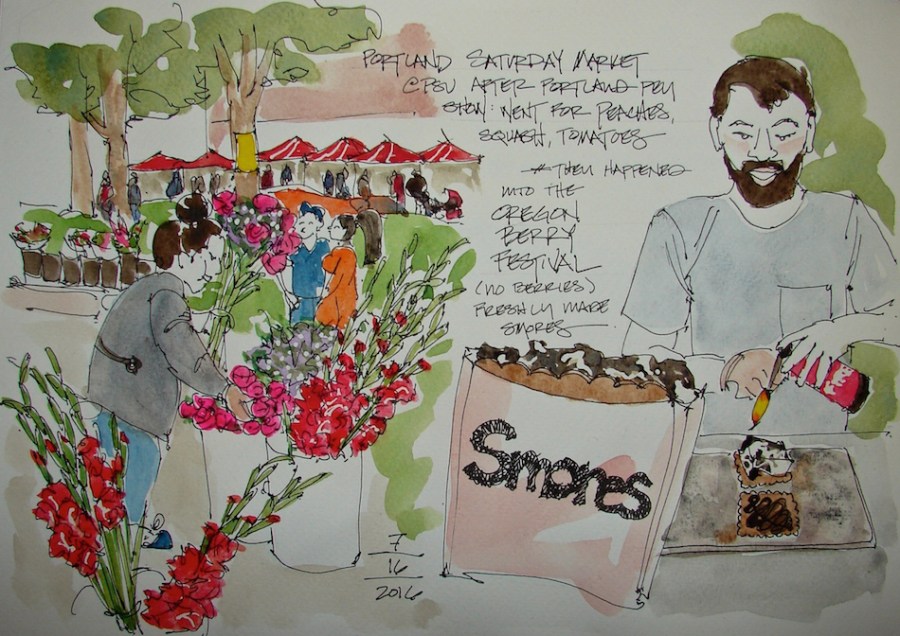 PORTLAND SATURDAY MARKET
@PSU AFTER PORTLAND PEN
SHOW: WENT FOR PEACHES,
SQUASH, TOMATOES
* THEN HAPPENED
INTO THE
OREGON
BERRY
FESTIVAL
(NO BERRIES)
FRESHLY MADE
SMORES
Smores
7
16
2016